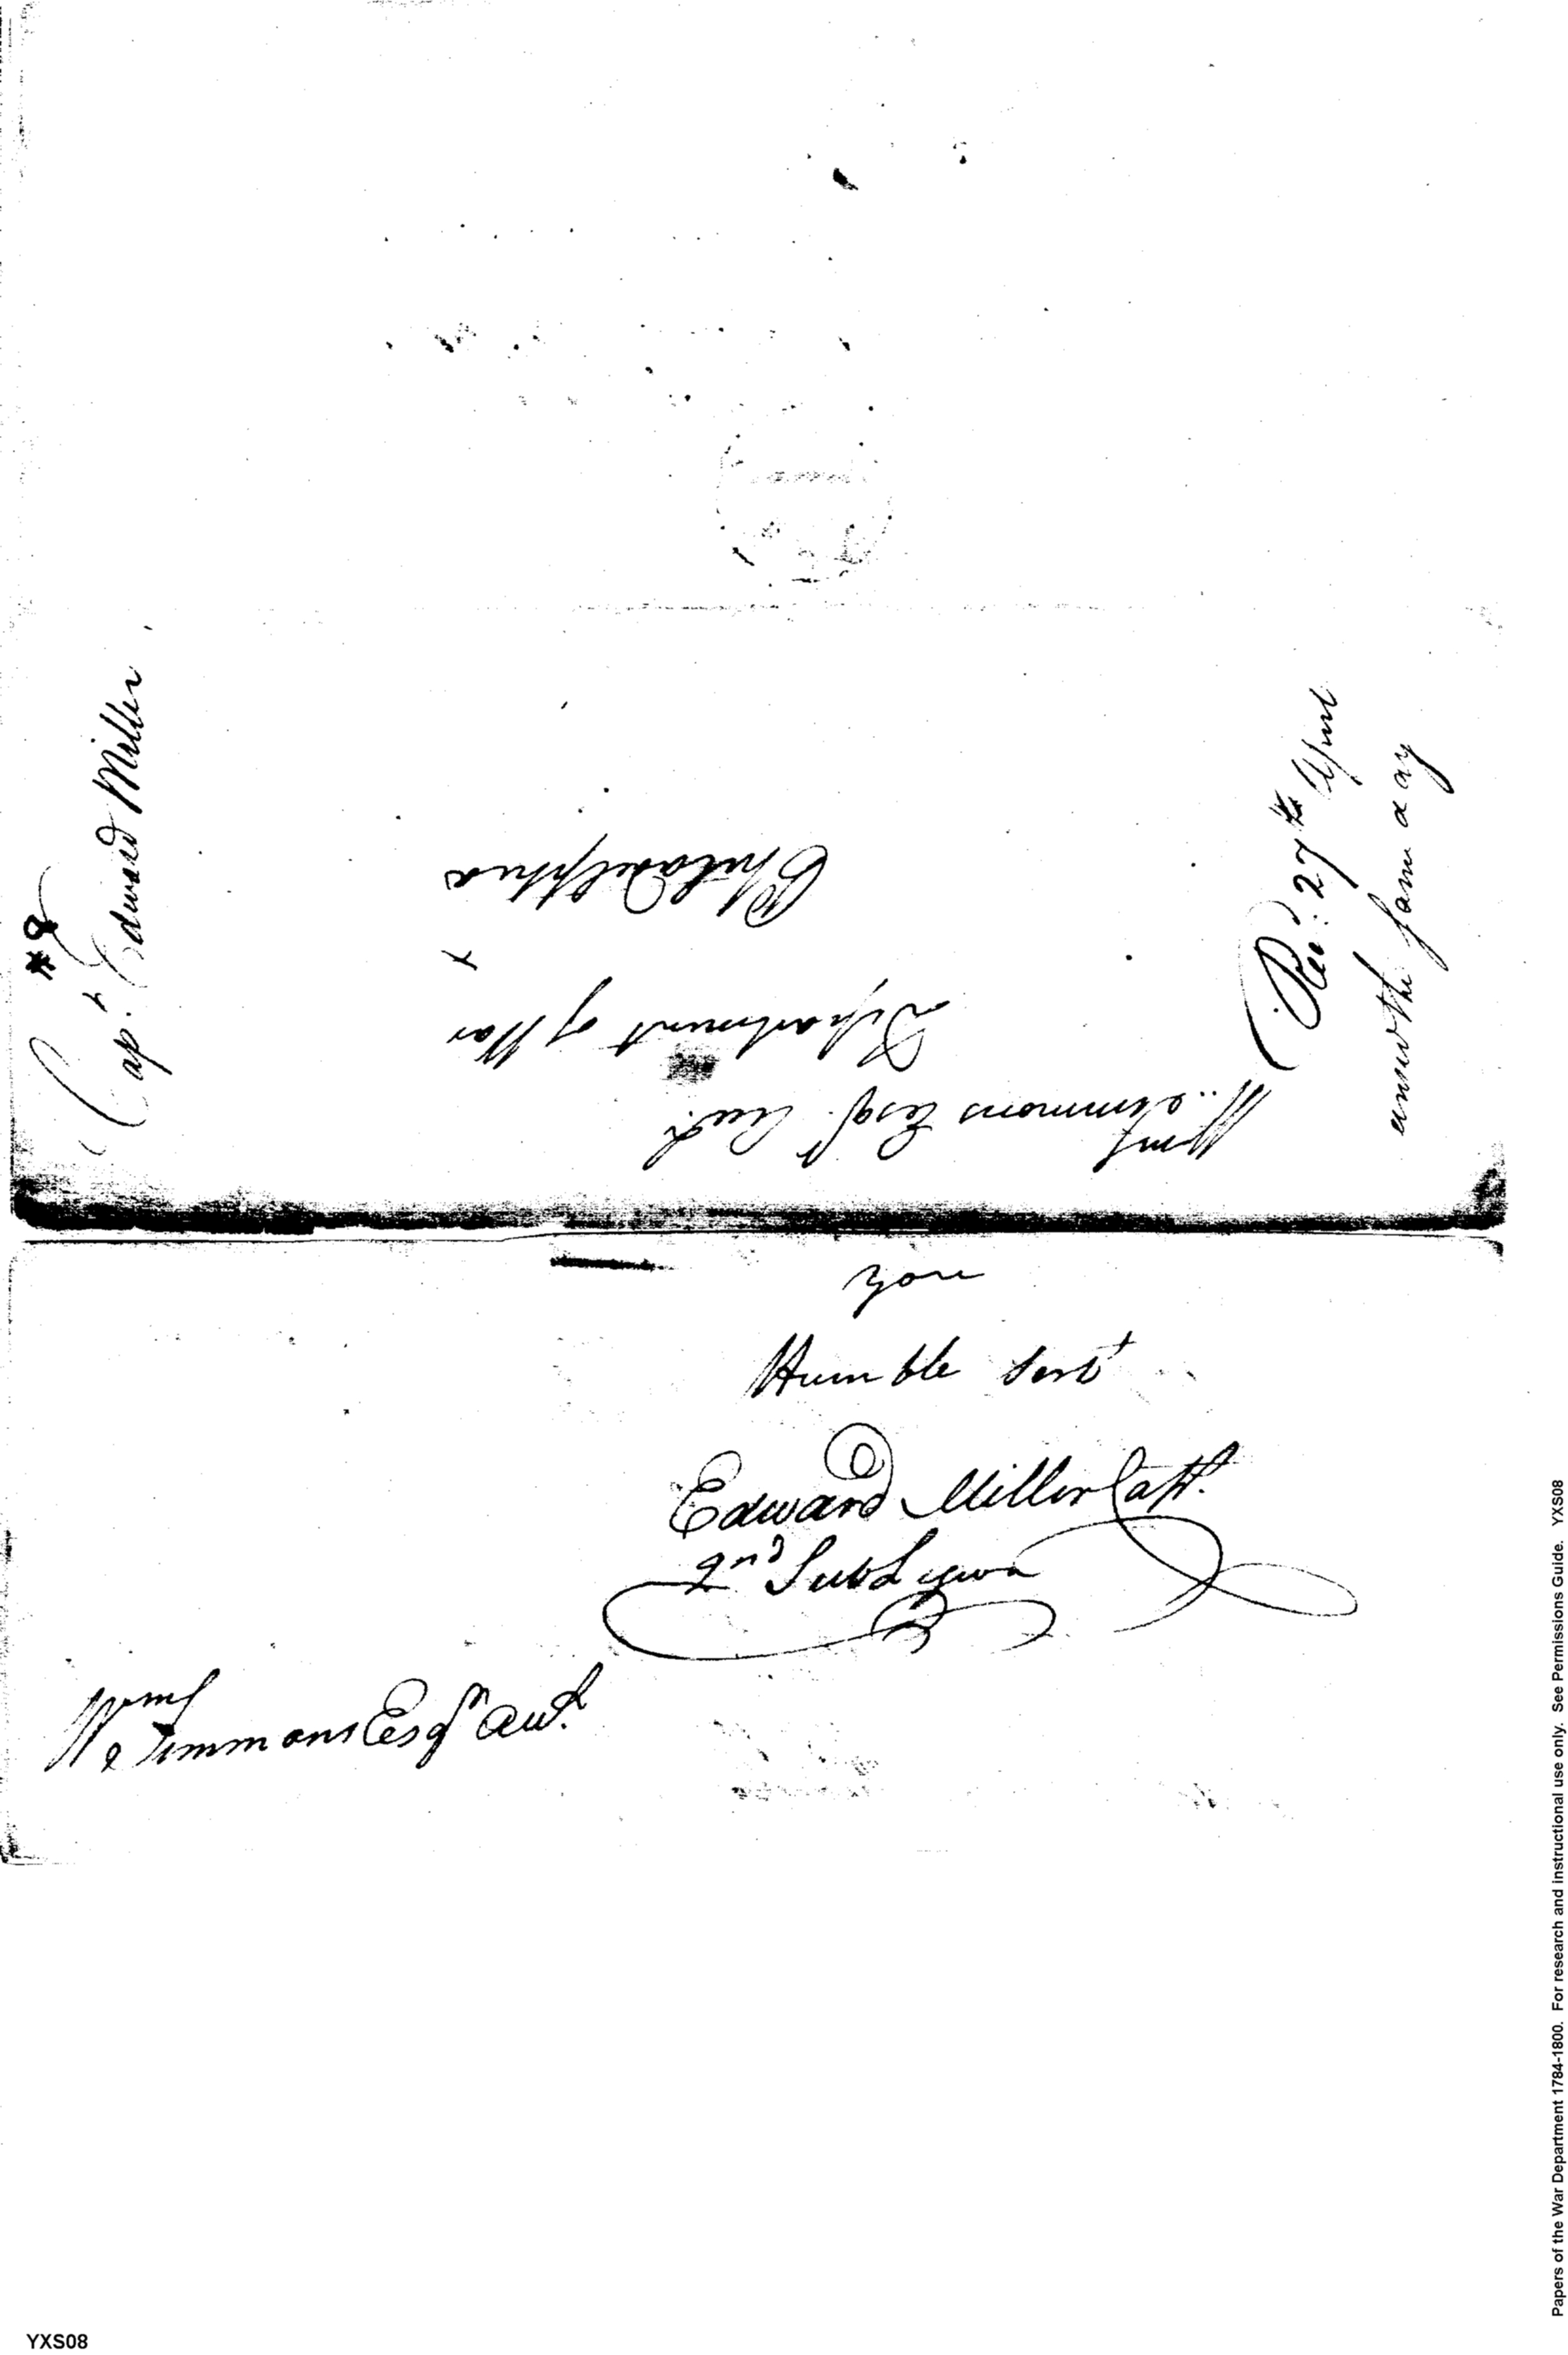 *9
Capt. Edward Miller
Wm Simmons Esqr. Aut.
Department of War
Philadelphia
Rec: 27th April
answd the same day
your
Humble Servt
Edward Miller Capt.
2nd Sub Legion
Wm Simmons Esqr Aut.
Papers of the War Department 1784-1800. For research and instructional use only. See Permissions Guide. YXS08
YXS08